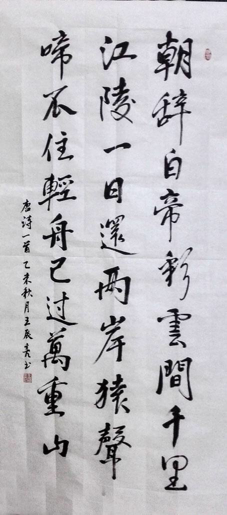 朝辞白帝彩雲間千里
江陵一日還两岸猿聲
啼不住輕舟已过萬重山
唐诗一首乙未秋月王辰秀书